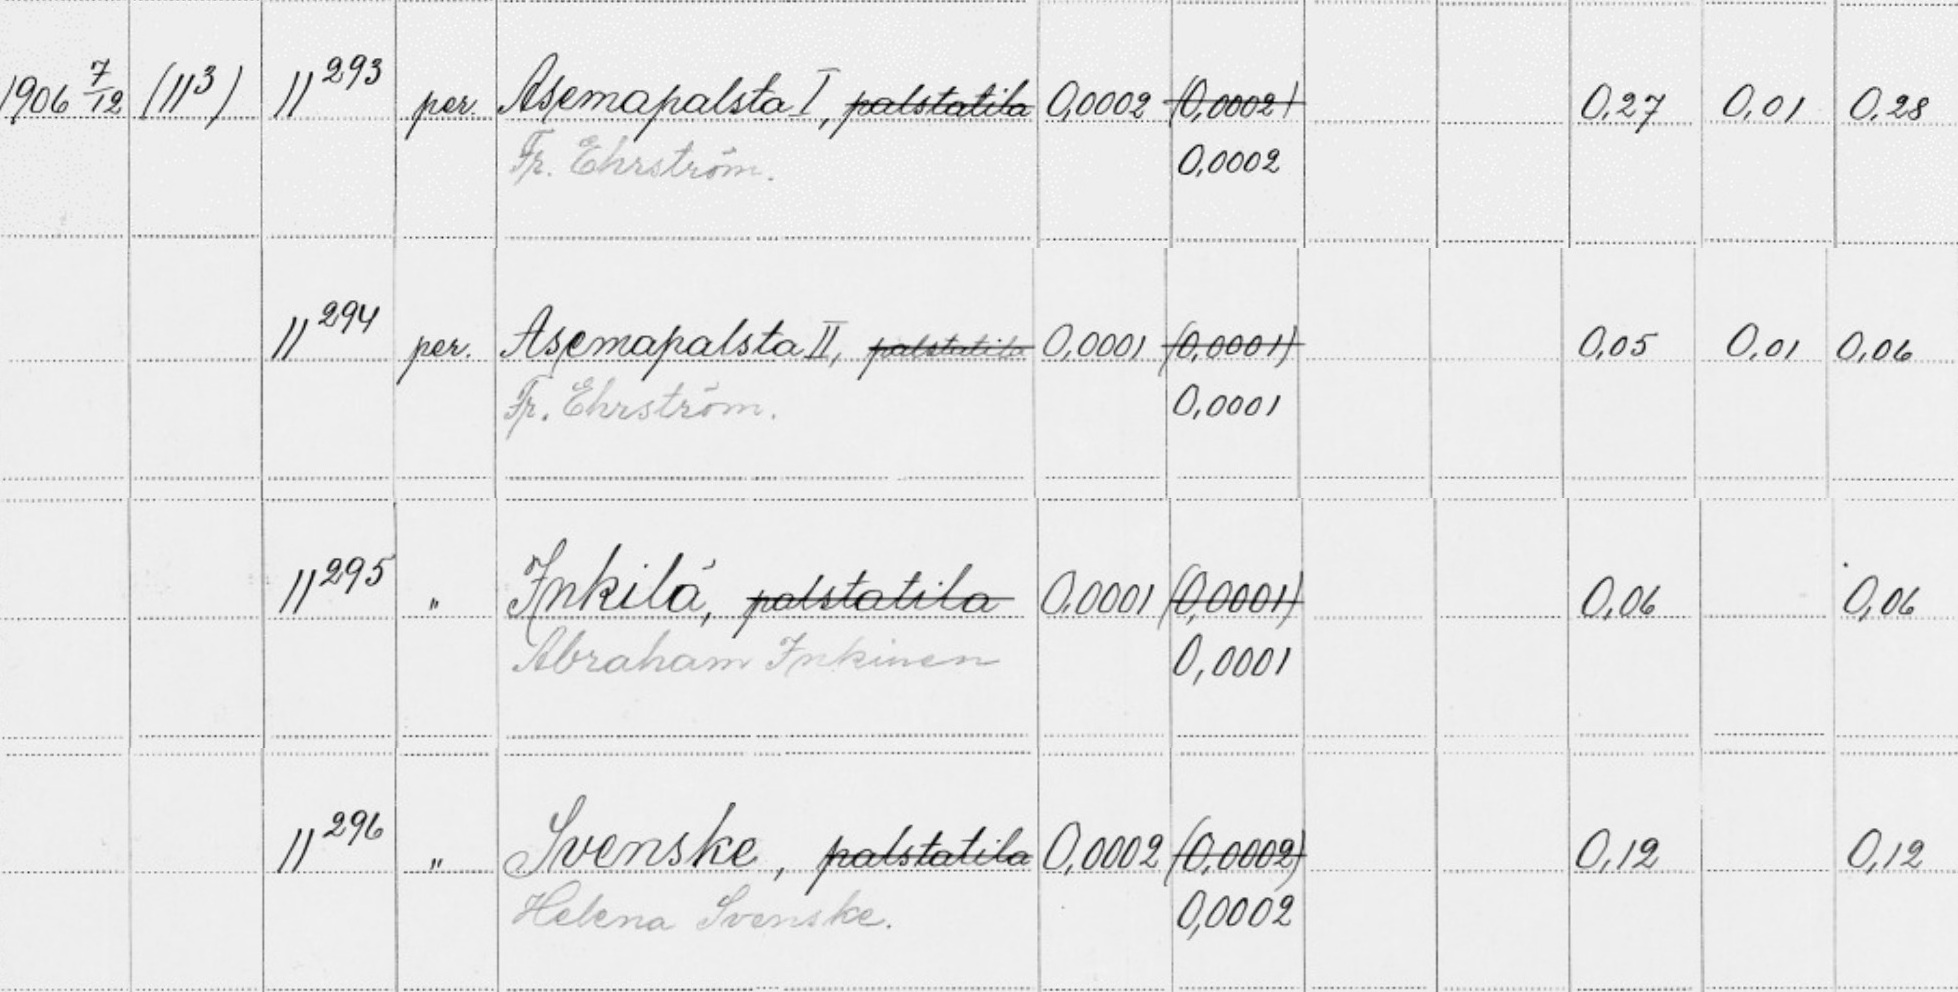 1906 7/12 (11³) 11²⁹³ per. Asemapalsta I, palstatila 0,0002 (0,0002) 0,27 0,01 0,28
Fr. Ehrström. 0,0002
11²⁹⁴ per. Asemapalsta II, palstatila 0,0001 (0,0001) 0,05 0,01 0,06
Fr. Ehrström. 0,0001
11²⁹⁵ " Inkilä, palstatila 0,0001 (0,0001) 0,06 0,06
Abraham Inkinen 0,0001
11²⁹⁶ " Svenske, palstatila 0,0002 (0,0002) 0,12 0,12
Helena Svenske. 0,0002